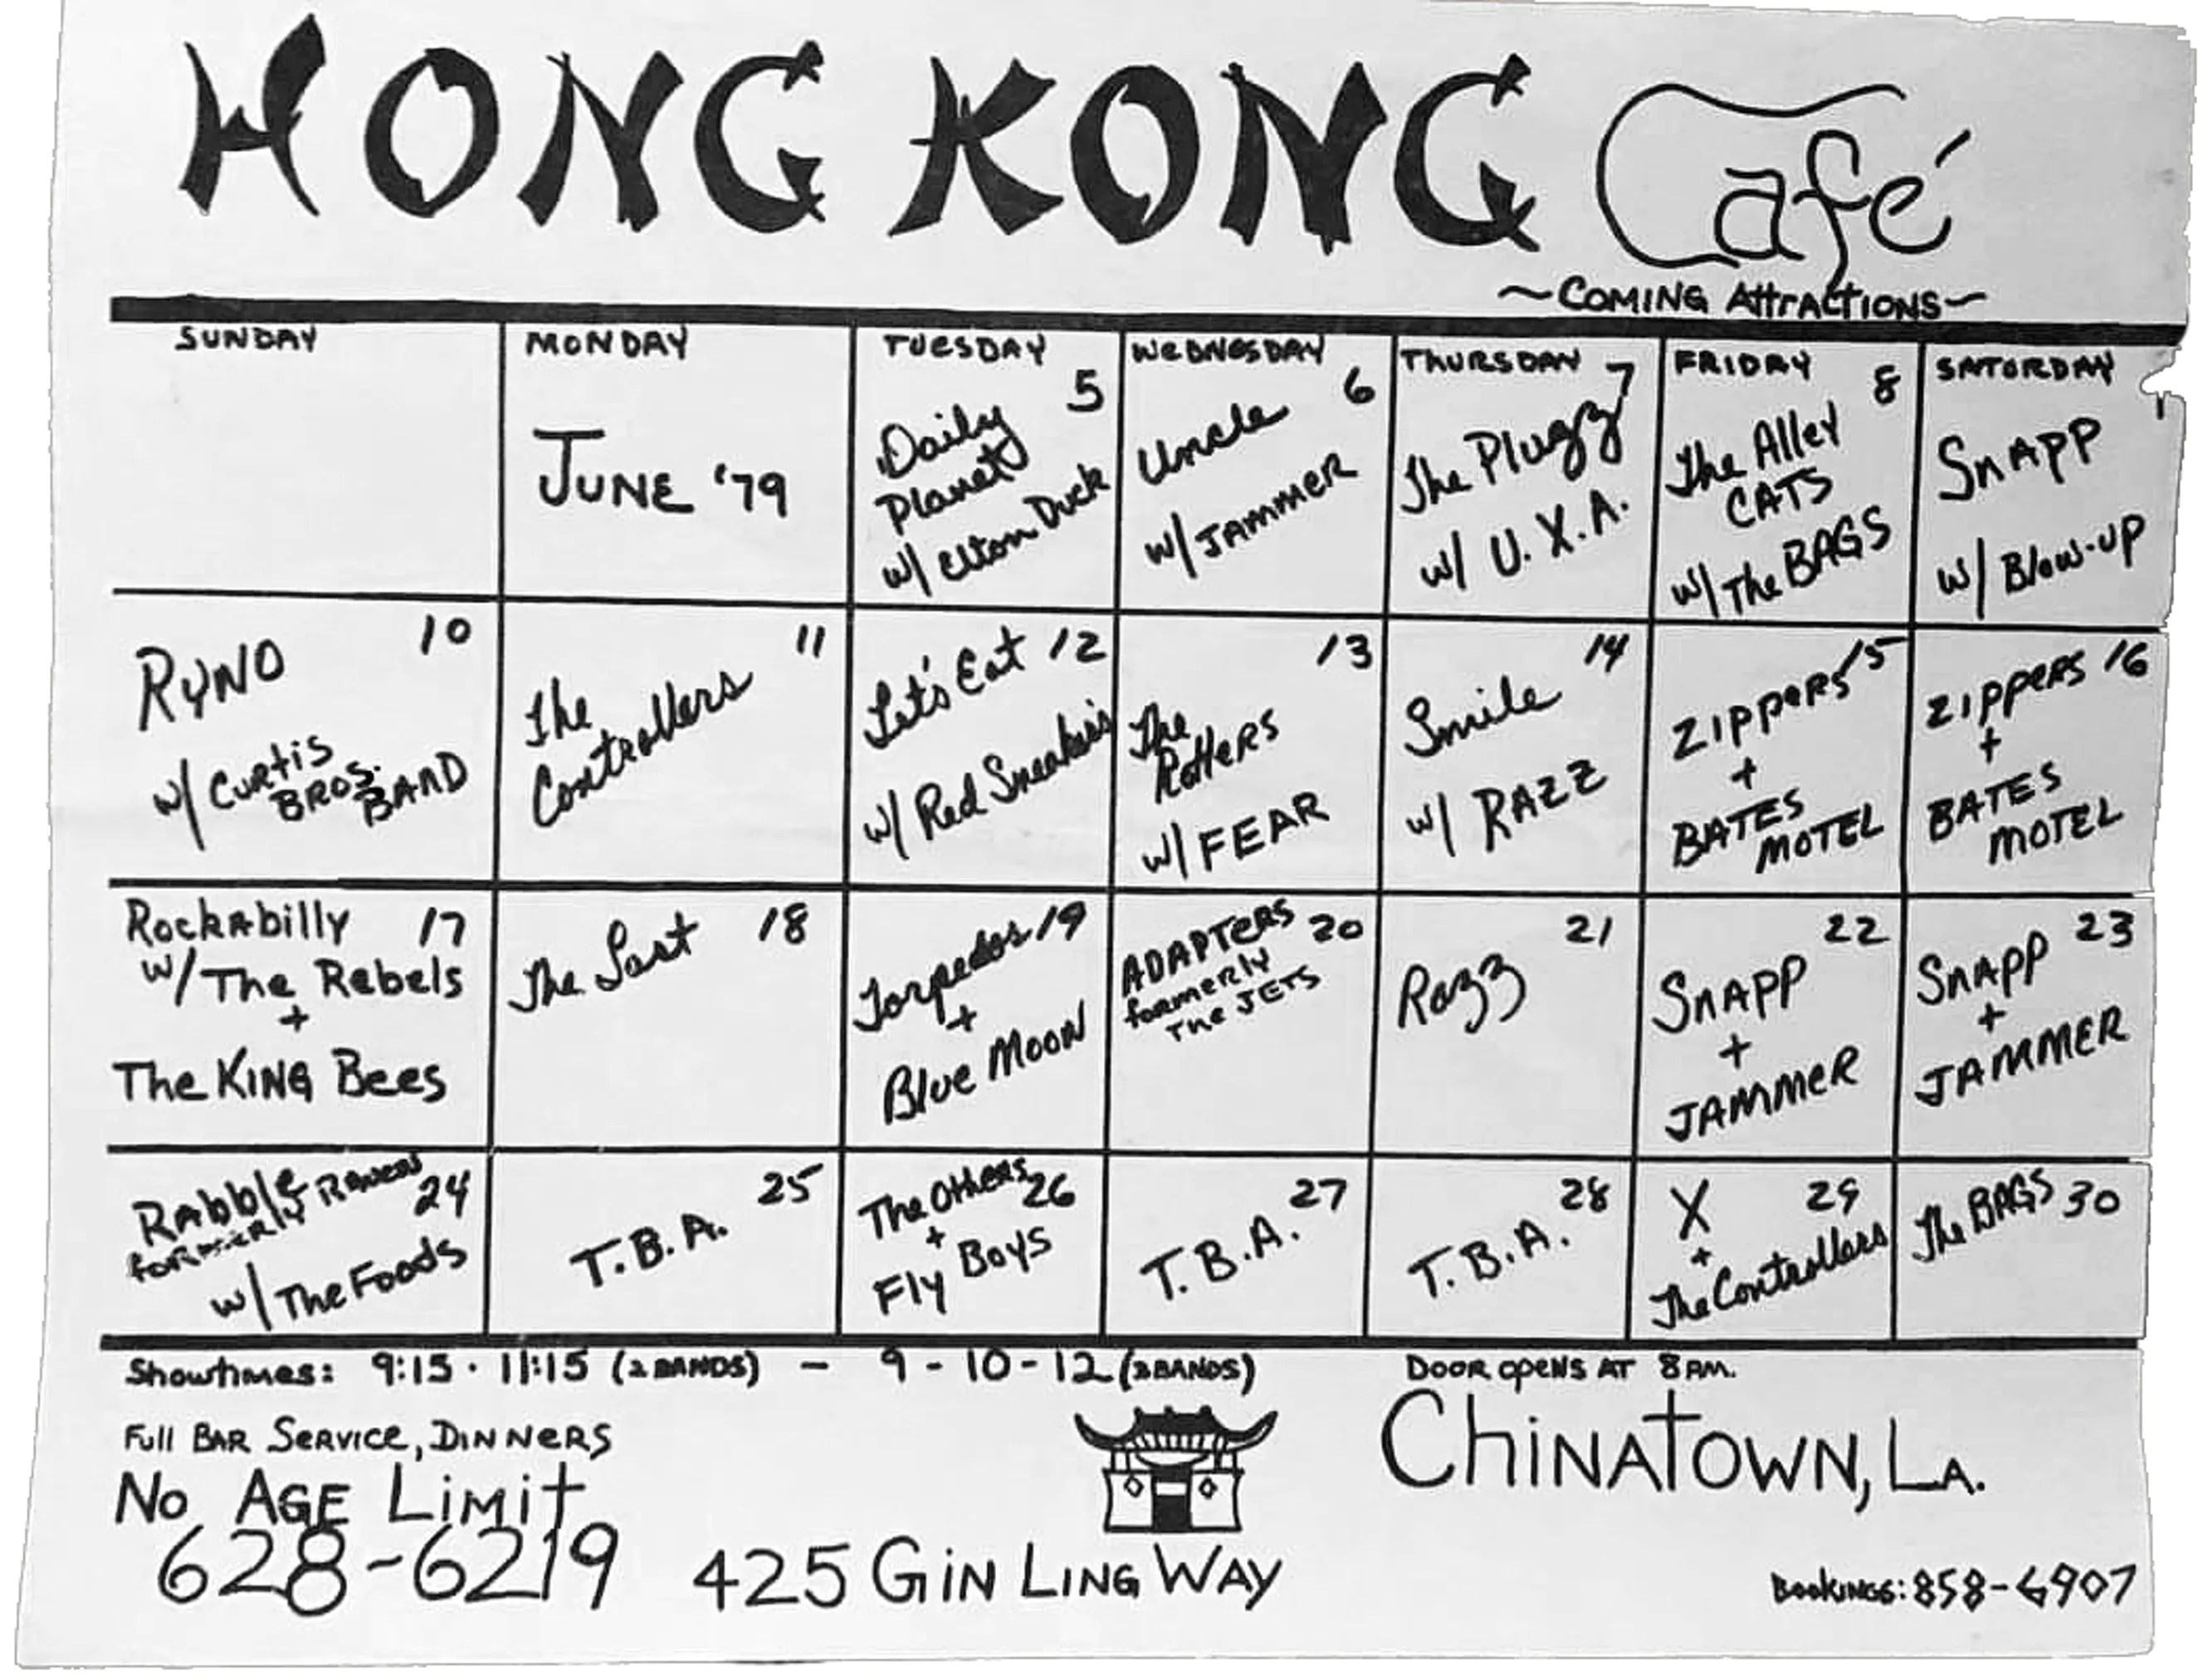 HONG KONG Café
~COMING AttrACTIONS~
SUNDAY MONDAY TUESDAY WEDNESDAY THURSDAY FRIDAY SATURDAY
JUNE '79
5
Daily
Planet
w/ Elton Duck
6
Uncle
w/ JAMMER
7
The Plugz
w/ U.X.A.
8
The Alley
CATS
w/ The BAGS
SNAPP
w/ Blow-up
10
RYNO
w/ Curtis
BROS.
BAND
11
The
Controllers
12
Let's Eat
w/ Red Sneakers
13
The
Rotters
w/ FEAR
14
Smile
w/ RAZZ
15
ZIPPERS
+
BATES
MOTEL
16
ZIPPERS
+
BATES
MOTEL
Rockabilly 17
w/ The Rebels
+
The KING Bees
18
The Last
19
Torpedos
+
Blue Moon
20
ADAPTERS
formerly
The JETS
21
Razz
22
SNAPP
+
JAMMER
23
SNAPP
+
JAMMER
24
Rabble
formerly Ravers
w/ The Foods
25
T.B.A.
26
The Others
+
Fly Boys
27
T.B.A.
28
T.B.A.
29
X
+
The Controllers
30
The BAGS
Showtimes: 9:15 · 11:15 (2 BANDS) — 9-10-12 (3 BANDS) DOOR opens AT 8 PM.
Full BAR Service, DINNERS
No AGE Limit
628-6219
425 GiN LING WAY
ChiNATOWN, LA.
BOOKINGS: 858-6907